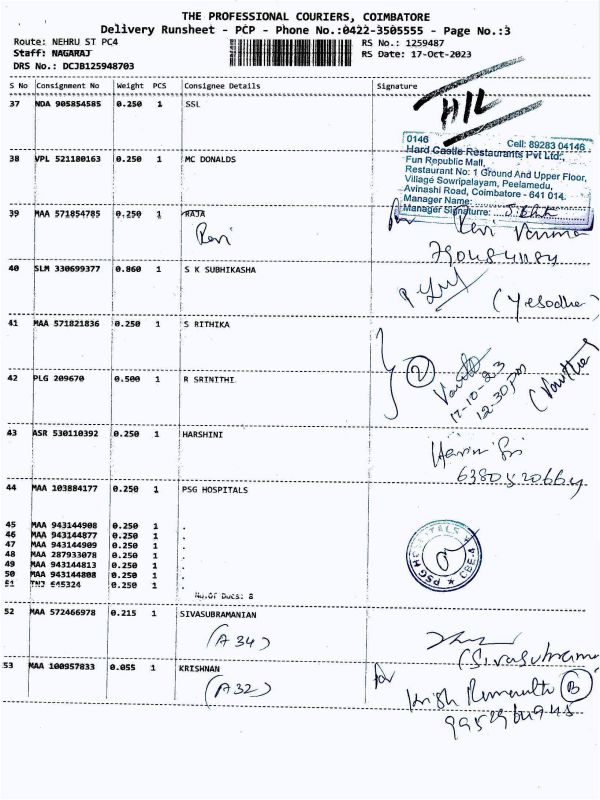 THE PROFESSIONAL COURIERS, COIMBATORE
Delivery Runsheet - PCP - Phone No.:0422-3505555 - Page No.:3
Route: NEHRU ST PC4 RS No.: 1259487
Staff: NAGARAJ RS Date: 17-Oct-2023
DRS No.: DCJB125948703
S No Consignment No Weight PCS Consignee Details Signature
37 NDA 905854585 0.250 1 SSL
H/L
0146 Cell: 89283 04146
Hard Castle Restaurants Pvt Ltd.,
Fun Republic Mall,
Restaurant No: 1 Ground And Upper Floor,
Village Sowripalayam, Peelamedu,
Avinashi Road, Coimbatore - 641 014.
Manager Name:
Manager Signature:
38 VPL 521180163 0.250 1 MC DONALDS
39 MAA 571854785 0.250 1 RAJA
Ravi
for Ravi Varma
40 SLM 330699377 0.860 1 S K SUBHIKASHA
(Yesodha)
41 MAA 571821836 0.250 1 S RITHIKA
2
17-10-23
12.30pm
42 PLG 209670 0.500 1 R SRINITHI
43 ASR 530110392 0.250 1 HARSHINI
44 MAA 103884177 0.250 1 PSG HOSPITALS
45 MAA 943144908 0.250 1 .
46 MAA 943144877 0.250 1 .
47 MAA 943144909 0.250 1 .
48 MAA 287933078 0.250 1 .
49 MAA 943144813 0.250 1 .
50 MAA 943144808 0.250 1 .
51 TNJ 645324 0.250 1 .
No.Of Docs: 8
PSG HOSPITALS ★ CBE-4 ★
52 MAA 572466978 0.215 1 SIVASUBRAMANIAN
(A34)
(Sivasubrama
53 MAA 100957833 0.055 1 KRISHNAN
(A32)
for
B